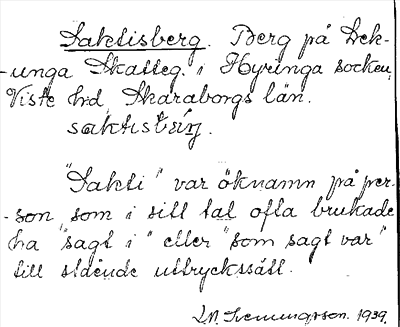 Saktisberg. Berg på Lek-
-unga Skatteg. i Hyringa socken,
Viste hd, Skaraborgs län.
"Sakti" var öknamn på per-
-son, som i sitt tal ofta brukade
ha "sagt i" eller "som sagt var"
till stående uttryckssätt.
1939.